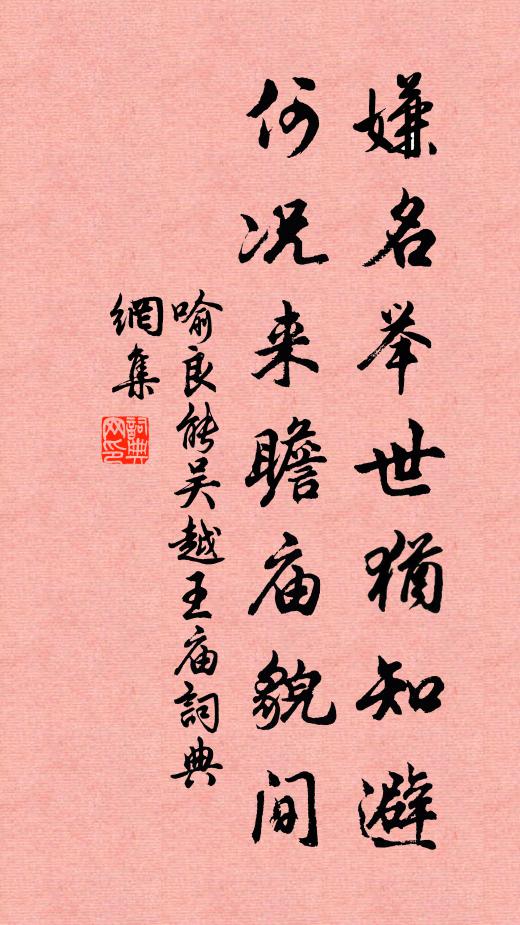 嫌名举世犹知避
何况来瞻庙貌间
喻良能吴越王庙詞典
網集
詞典
网印